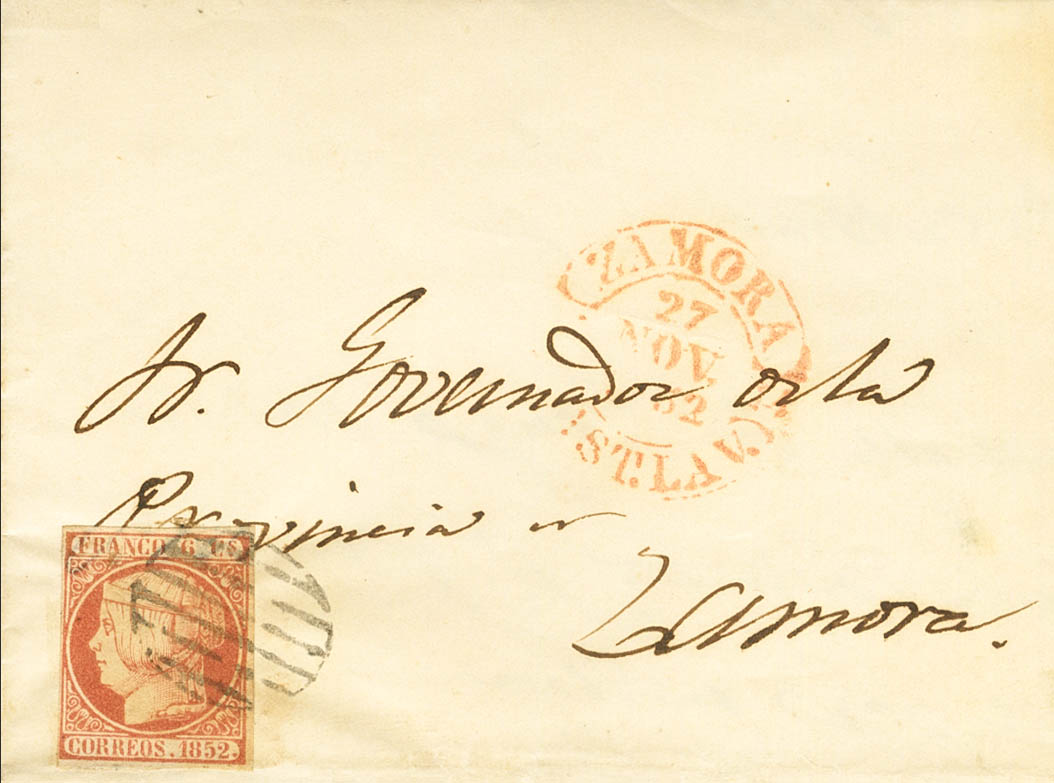 ZAMORA
27
NOV.
52
ST. LA V.
Sr. Governador de la
Provincia de
Zamora.
FRANCO 6 CS
CORREOS. 1852.